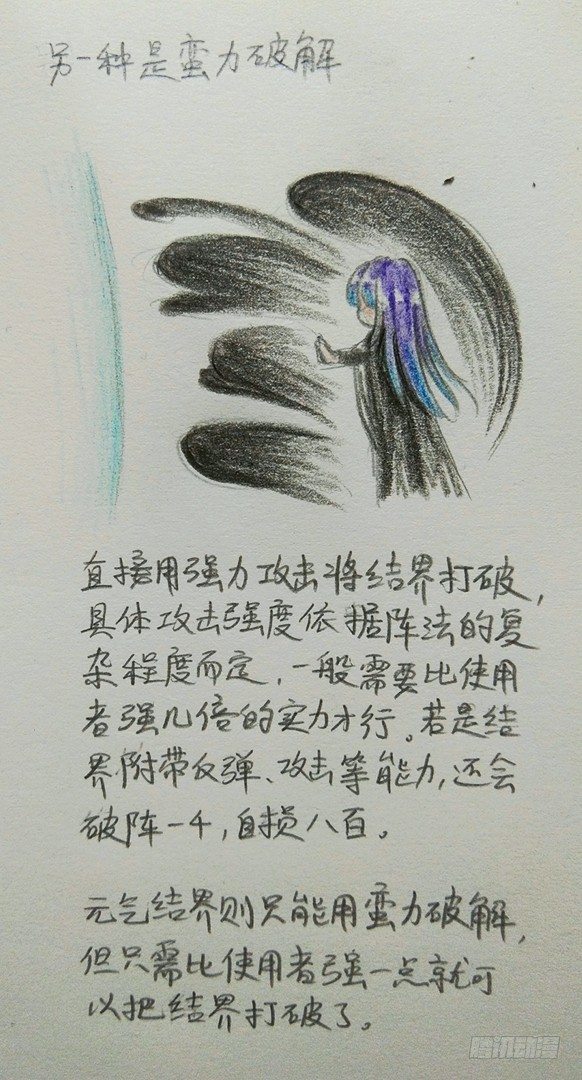 另一种是蛮力破解
直接用强力攻击将结界打破,
具体攻击强度依据阵法的复
杂程度而定,一般需要比使用
者强几倍的实力才行。若是结
界附带反弹、攻击等能力,还会
破阵一千,自损八百。
元气结界则只能用蛮力破解,
但只需比使用者强一点就可
以把结界打破了。
腾讯动漫